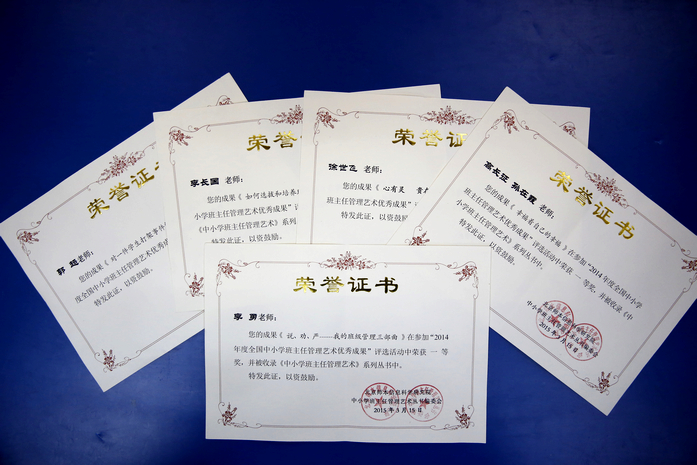 荣誉证书
郭 超老师：
您的成果《对一件学生打
度全国中小学班主任管理艺术优秀成
特发此证，以资鼓励。
荣誉
李长国 老师：
您的成果《 如何选拔和培养
小学班主任管理艺术优秀成果”
《中小学班主任管理艺术》系列
特发此证，以资鼓励。
荣誉证
徐世飞 老师：
您的成果《 心有灵
班主任管理艺术优秀成果”评选
《中小学班主任管理艺术》系列丛
特发此证，以资鼓励
荣誉证书
高长征 孙在霞 老师：
您的成果《 幸福着自己的幸福 》在参加“2014年度全国中小学
班主任管理艺术优秀成果”评选活动中荣获 一 等奖，并被收录《中
小学班主任管理艺术》系列丛书中。
特发此证，以资鼓励。
中小学班主任管理艺术丛书编委会
2015年5月18日
荣誉证书
李 勇老师：
您的成果《 说、功、严——我的班级管理三部曲 》在参加“2014
年度全国中小学班主任管理艺术优秀成果”评选活动中荣获 一 等
奖，并被收录《中小学班主任管理艺术》系列丛书中。
特发此证，以资鼓励。
中小学班主任管理艺术丛书编委会
2015年5月18日